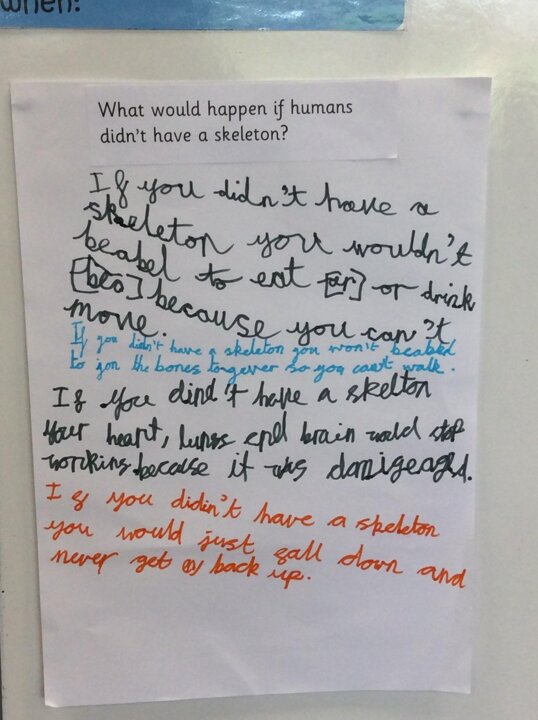 when?
What would happen if humans
didn't have a skeleton?
If you didn't have a
skeleton you wouldn't
beabel to eat [or] or drink
[bea] because you can't
move.
If you didn't have a skeleton you won't beabed
to jon the bones tongever so you can't walk.
If you dind't have a skelton
Your heart, lungs end brain would stop
working because it was damigeaged.
If you didin't have a skeleton
you would just fall down and
never get back up.